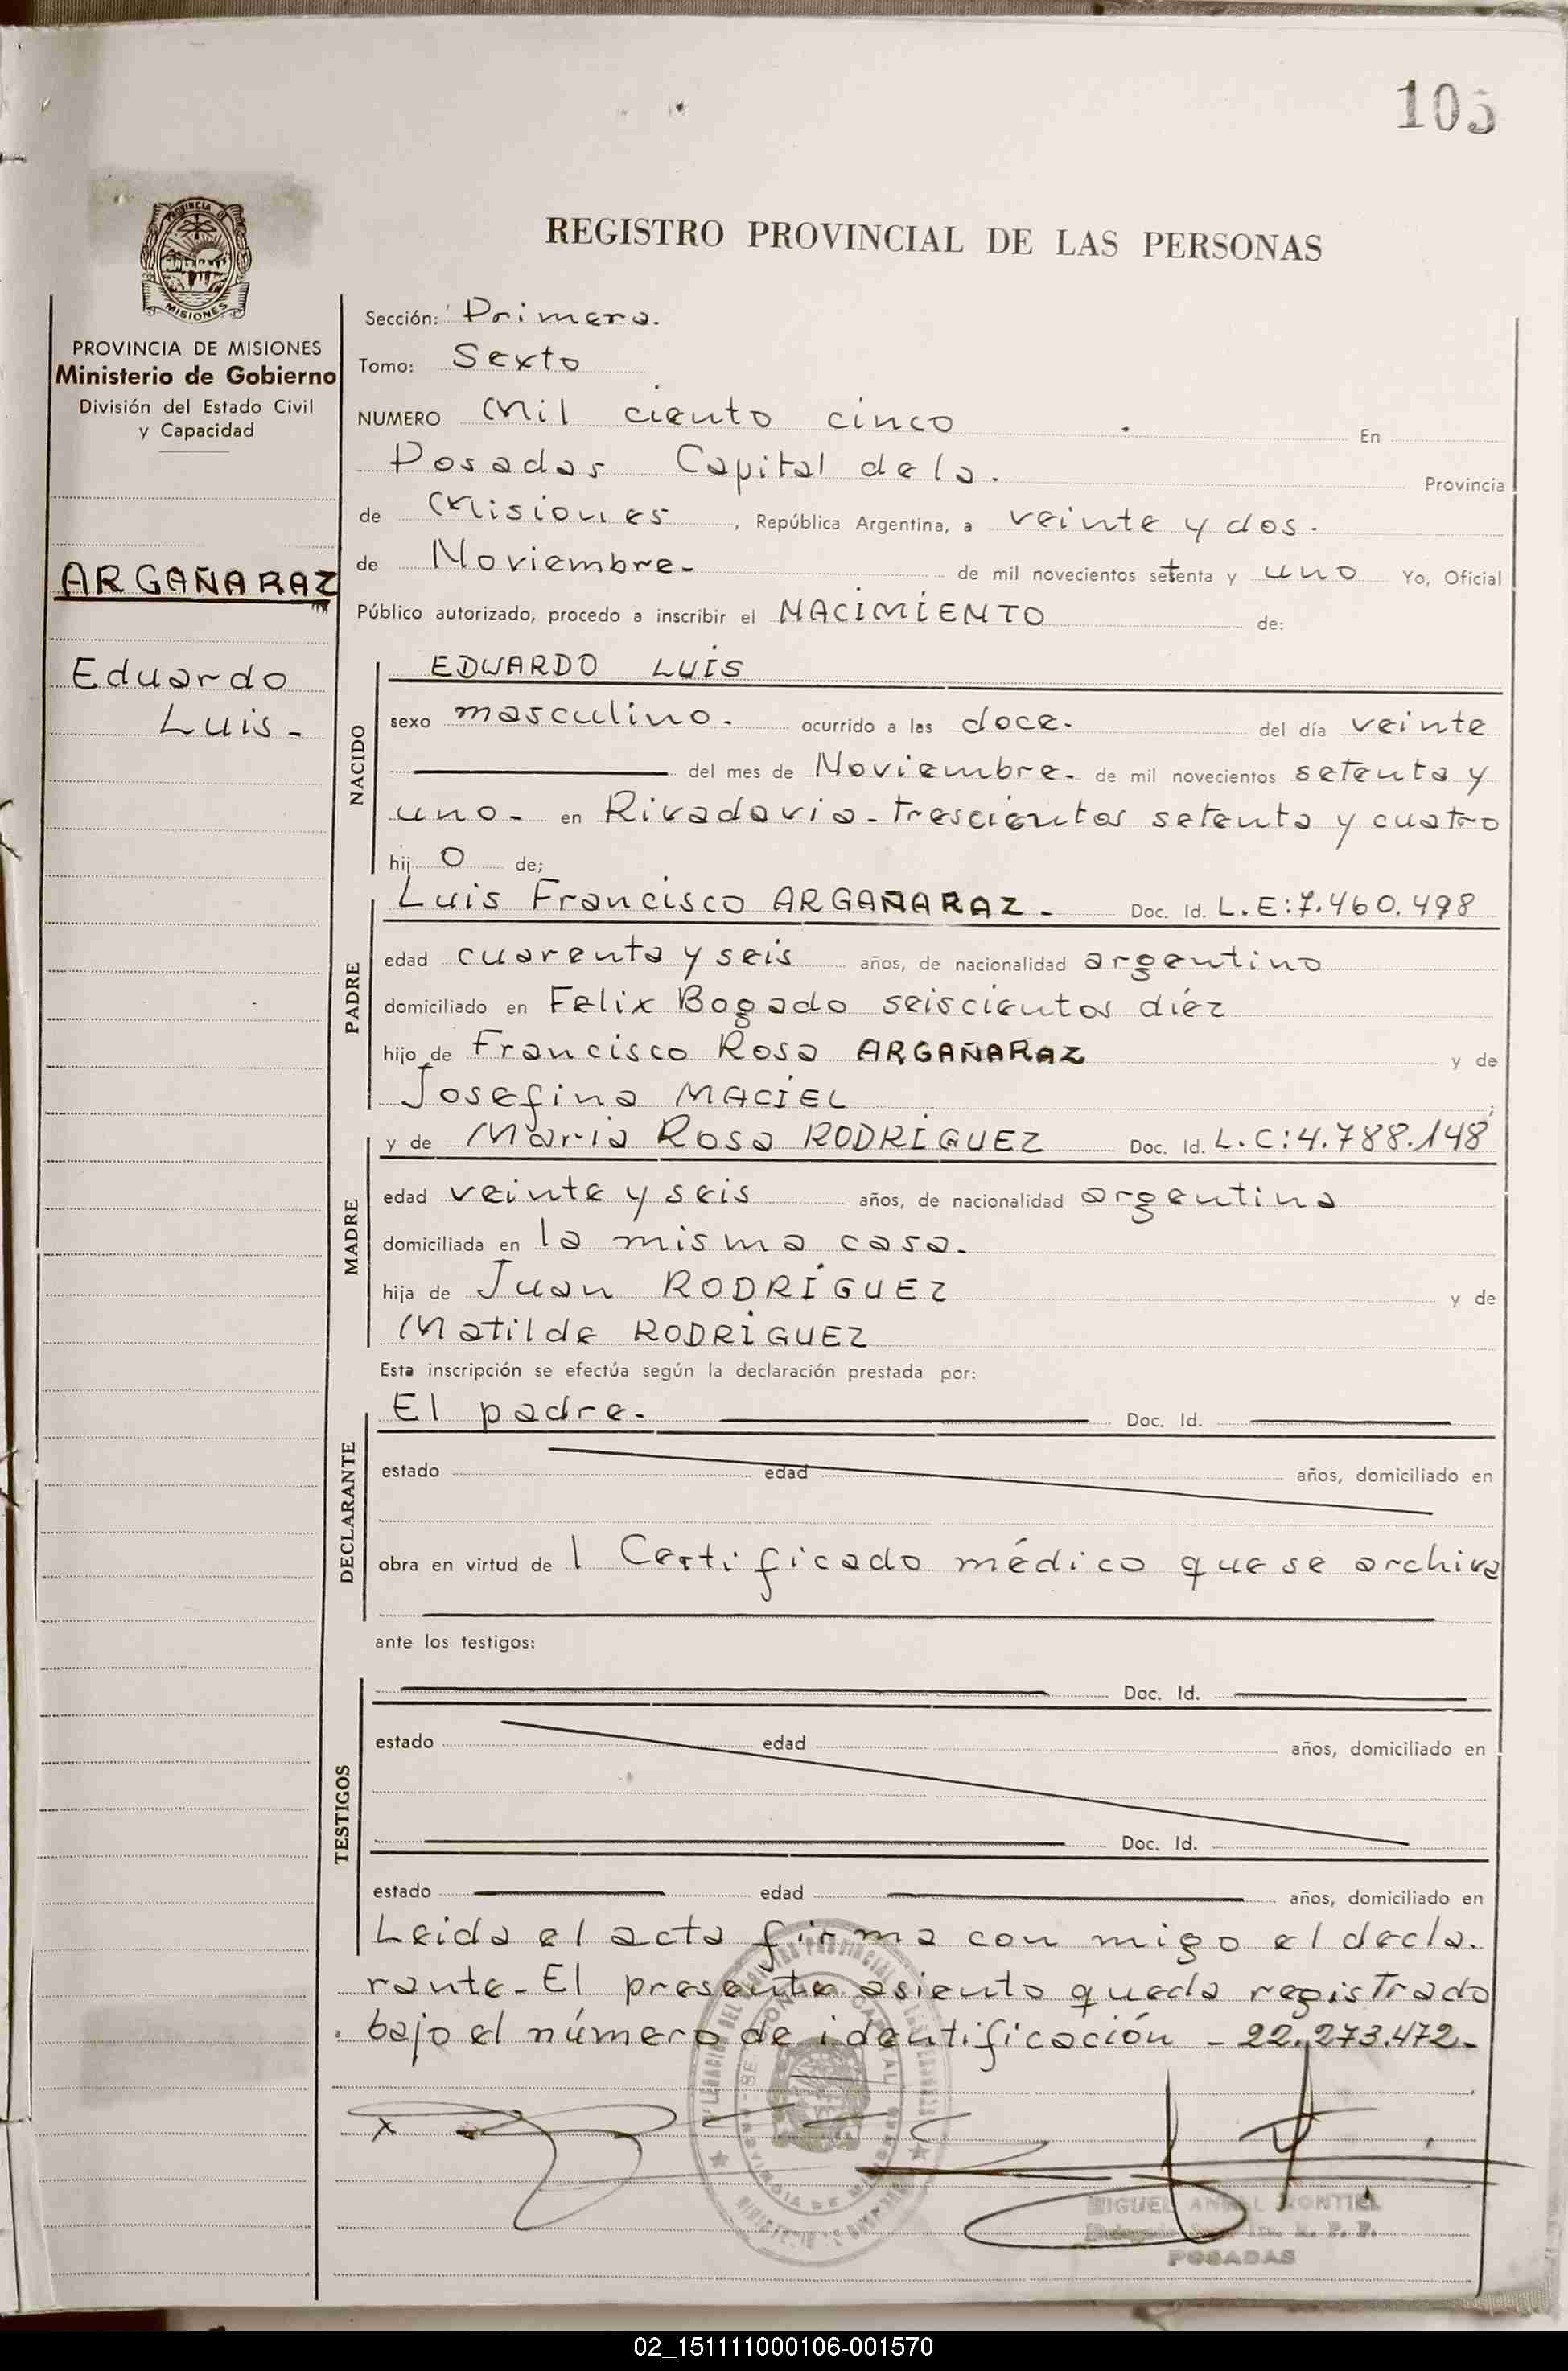 105
REGISTRO PROVINCIAL DE LAS PERSONAS
PROVINCIA DE MISIONES
Ministerio de Gobierno
División del Estado Civil
y Capacidad
ARGAÑARAZ
Eduardo
Luis -
Sección: Primera.
Tomo: Sexto
NUMERO Mil ciento cinco . En
Posadas Capital de la. Provincia
de Misiones, República Argentina, a veinte y dos.
de Noviembre- de mil novecientos setenta y uno Yo, Oficial
Público autorizado, procedo a inscribir el NACIMIENTO de:
NACIDO
EDUARDO LUIS
sexo masculino. ocurrido a las doce. del día veinte
del mes de Noviembre. de mil novecientos setenta y
uno- en Rivadavia-trescientos setenta y cuatro
hij o de;
PADRE
Luis Francisco ARGAÑARAZ. Doc. Id. L.E:7.460.498
edad cuarenta y seis años, de nacionalidad argentino
domiciliado en Felix Bogado seiscientos diéz
hijo de Francisco Rosa ARGAÑARAZ y de
Josefina MACIEL
MADRE
y de Maria Rosa RODRIGUEZ Doc. Id. L.C:4.788.148
edad veinte y seis años, de nacionalidad argentina
domiciliada en la misma casa.
hija de Juan RODRIGUEZ y de
Matilde RODRIGUEZ
Esta inscripción se efectúa según la declaración prestada por:
DECLARANTE
El padre. Doc. Id.
estado edad años, domiciliado en
obra en virtud de l Certificado médico que se archiva
ante los testigos:
TESTIGOS
Doc. Id.
estado edad años, domiciliado en
Doc. Id.
estado edad años, domiciliado en
Leida el acta firma con migo el decla.
rante-El presente asiento queda registrado
bajo el número de identificación - 22.273.472-
x
MIGUEL ANGEL MONTIEL
POSADAS
02_151111000106-001570